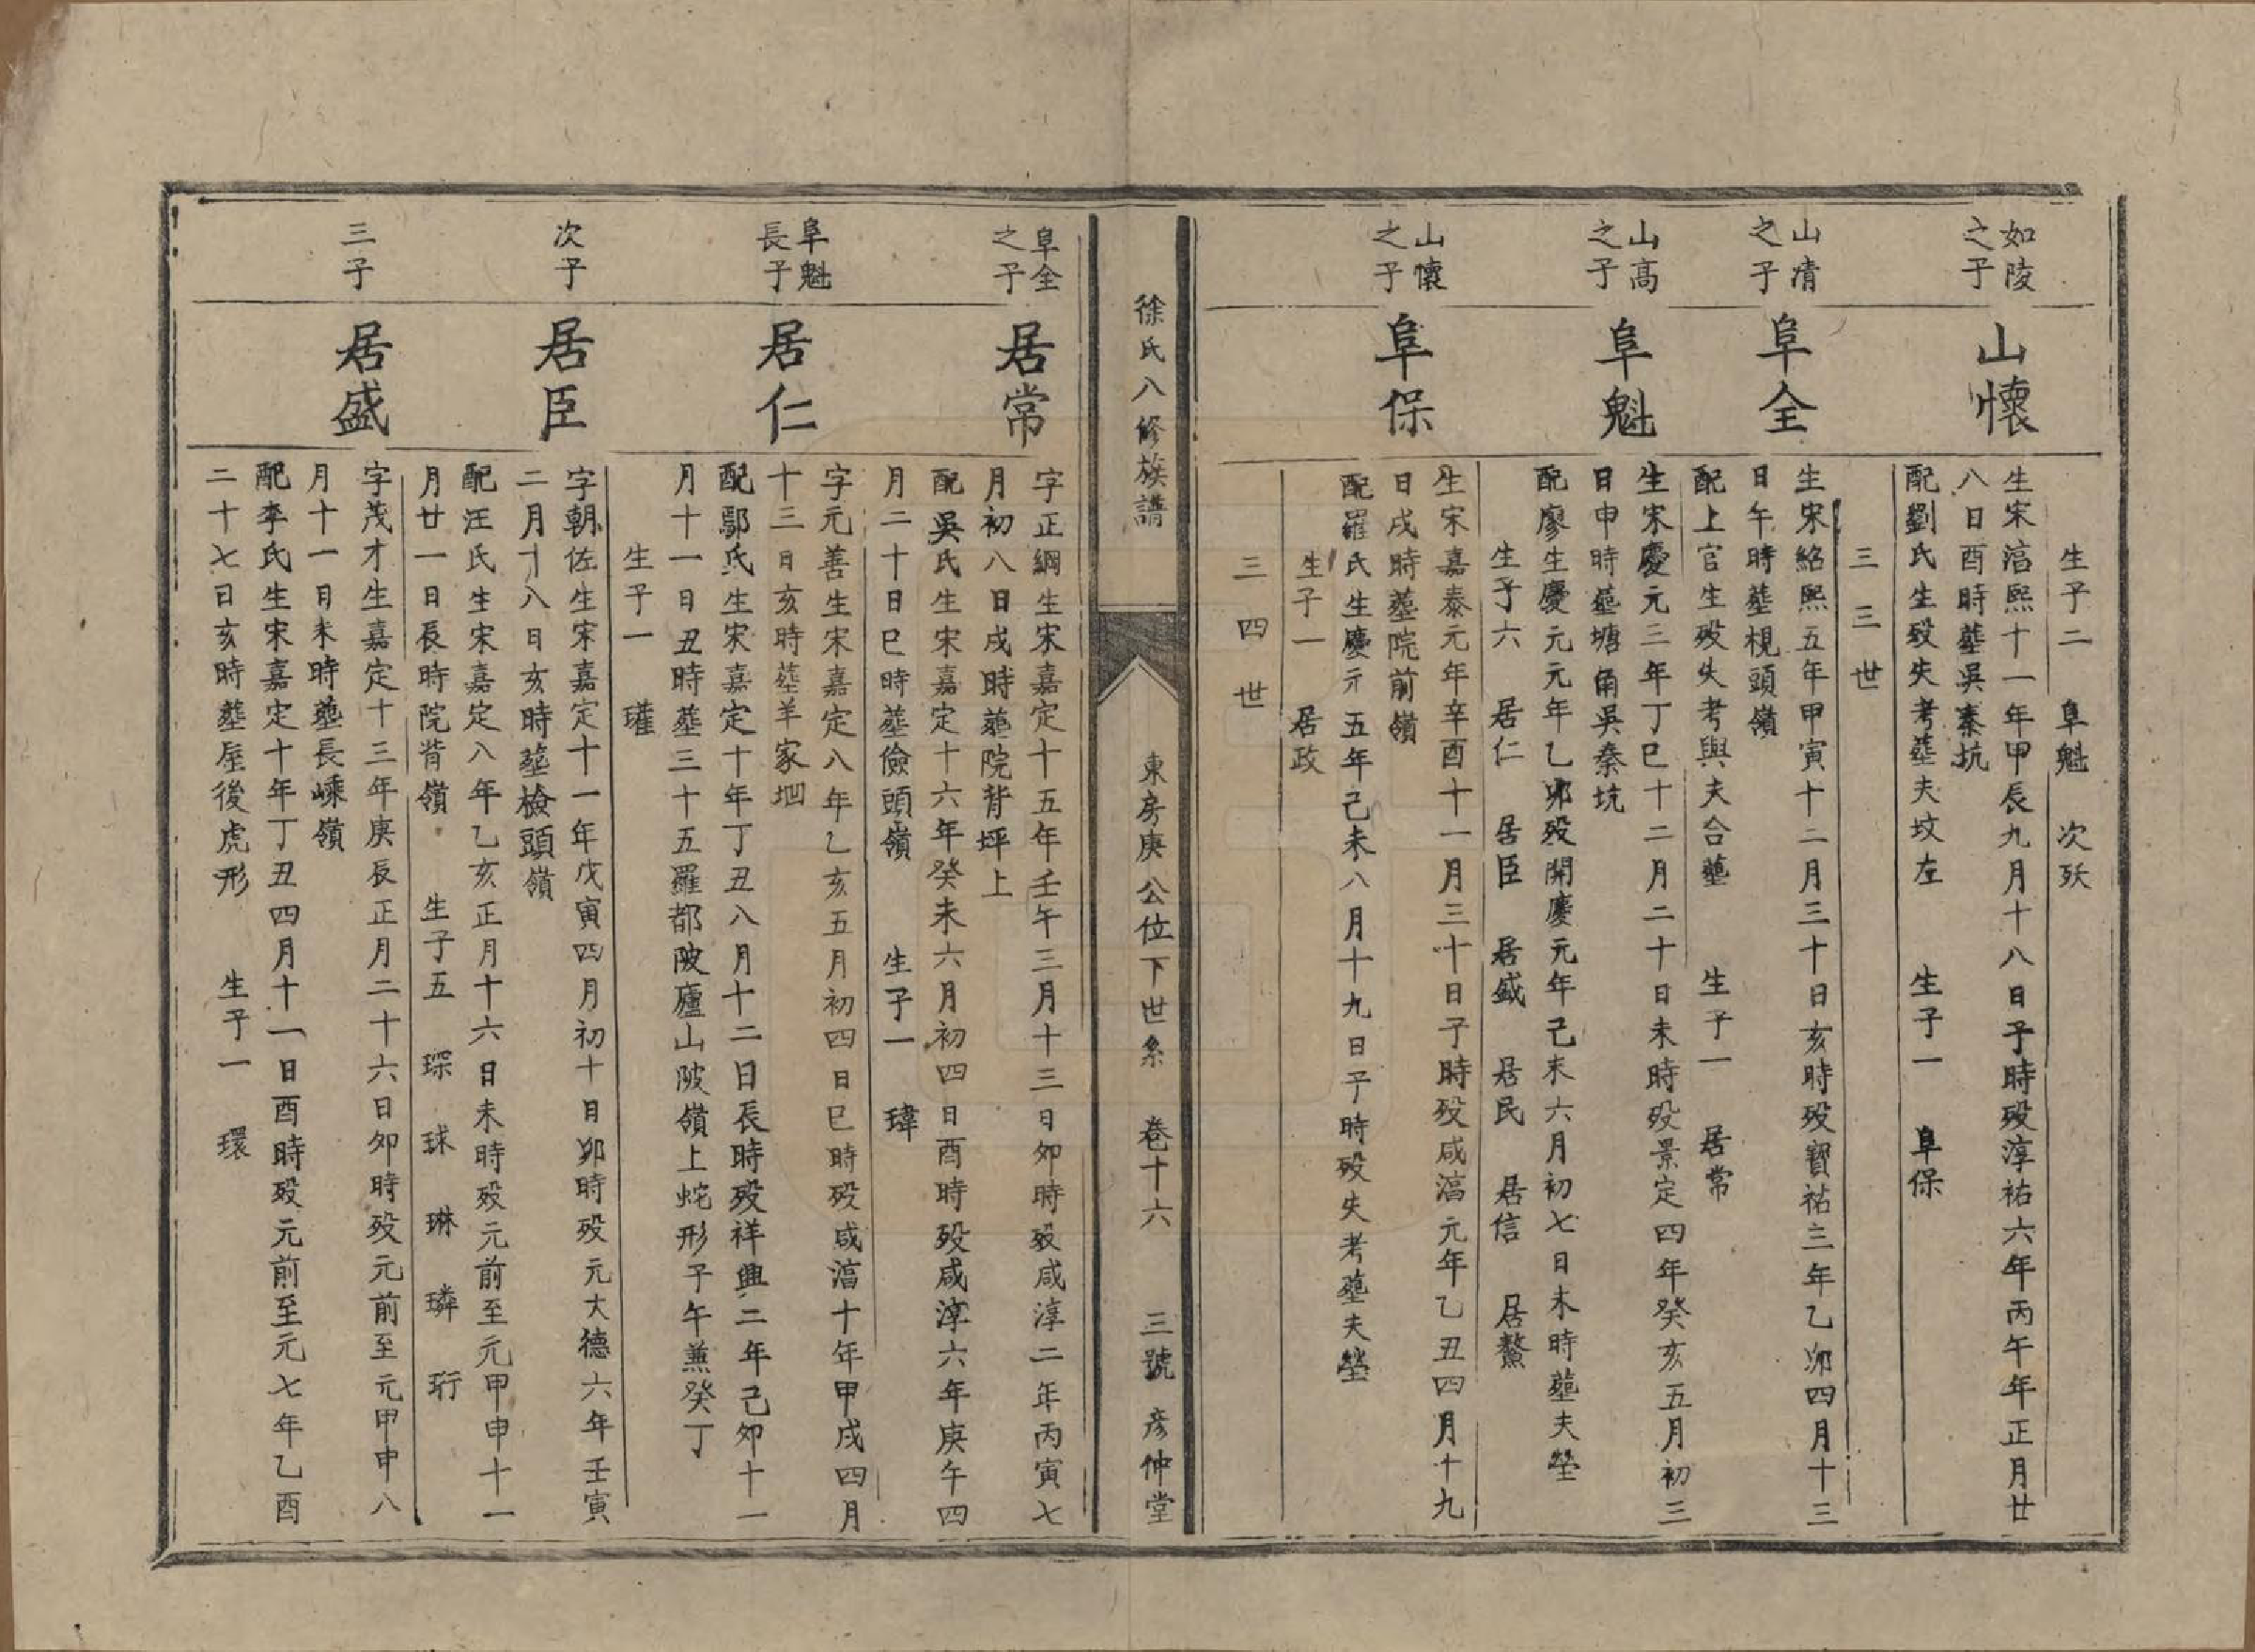 生子二　阜魁　次殀
如陵
之子
山懷
生宋湻熙十一年甲辰九月十八日子時殁淳祐六年丙午年正月廿
八日酉時塟吳秦坑
配劉氏生殁失考塟夫坟左　生子一　阜保
三三世
山清
之子
阜全
生宋紹熙五年甲寅十二月三十日亥時殁寶祐三年乙卯四月十三
日午時塟梘頭嶺
配上官生殁失考與夫合塟　生子一　居常
山高
之子
阜魁
生宋慶元三年丁巳十二月二十日未時殁景定四年癸亥五月初三
日申時塟塘角吳秦坑
配廖生慶元元年乙卯殁開慶元年己未六月初七日未時塟夫塋
生子六　居仁　居臣　居盛　居民　居信　居鰲
山懷
之子
阜保
生宋嘉泰元年辛酉十一月三十日子時殁咸湻元年乙丑四月十九
日戌時塟院前嶺
配羅氏生慶元五年己未八月十九日子時殁失考塟夫塋
生子一　居政
三四世
徐氏八修族譜　東房庚公位下世系　卷十六　三號　彦仲堂
阜全
之子
居常
字正綱生宋嘉定十五年壬午三月十三日卯時殁咸淳二年丙寅七
月初八日戌時塟院背坪上
配吳氏生宋嘉定十六年癸未六月初四日酉時殁咸淳六年庚午四
月二十日巳時塟儉頭嶺　生子一　瑋
阜魁
長子
居仁
字元善生宋嘉定八年乙亥五月初四日巳時殁咸湻十年甲戌四月
十三日亥時塟羊家坥
配鄢氏生宋嘉定十年丁丑八月十二日辰時殁祥興二年己卯十一
月十一日丑時塟三十五羅都陂廬山陂嶺上蛇形子午兼癸丁
生子一　瓘
次子
居臣
字朝佐生宋嘉定十一年戊寅四月初十日卯時殁元大德六年壬寅
二月十八日亥時塟檢頭嶺
配汪氏生宋嘉定八年乙亥正月十六日未時殁元前至元甲申十一
月廿一日辰時院背嶺　生子五　琛　球　琳　璘　珩
三子
居盛
字茂才生嘉定十三年庚辰正月二十六日卯時殁元前至元甲申八
月十一日未時塟長嵊嶺
配李氏生宋嘉定十年丁丑四月十一日酉時殁元前至元七年乙酉
二十七日亥時塟屋後虎形　生子一　環